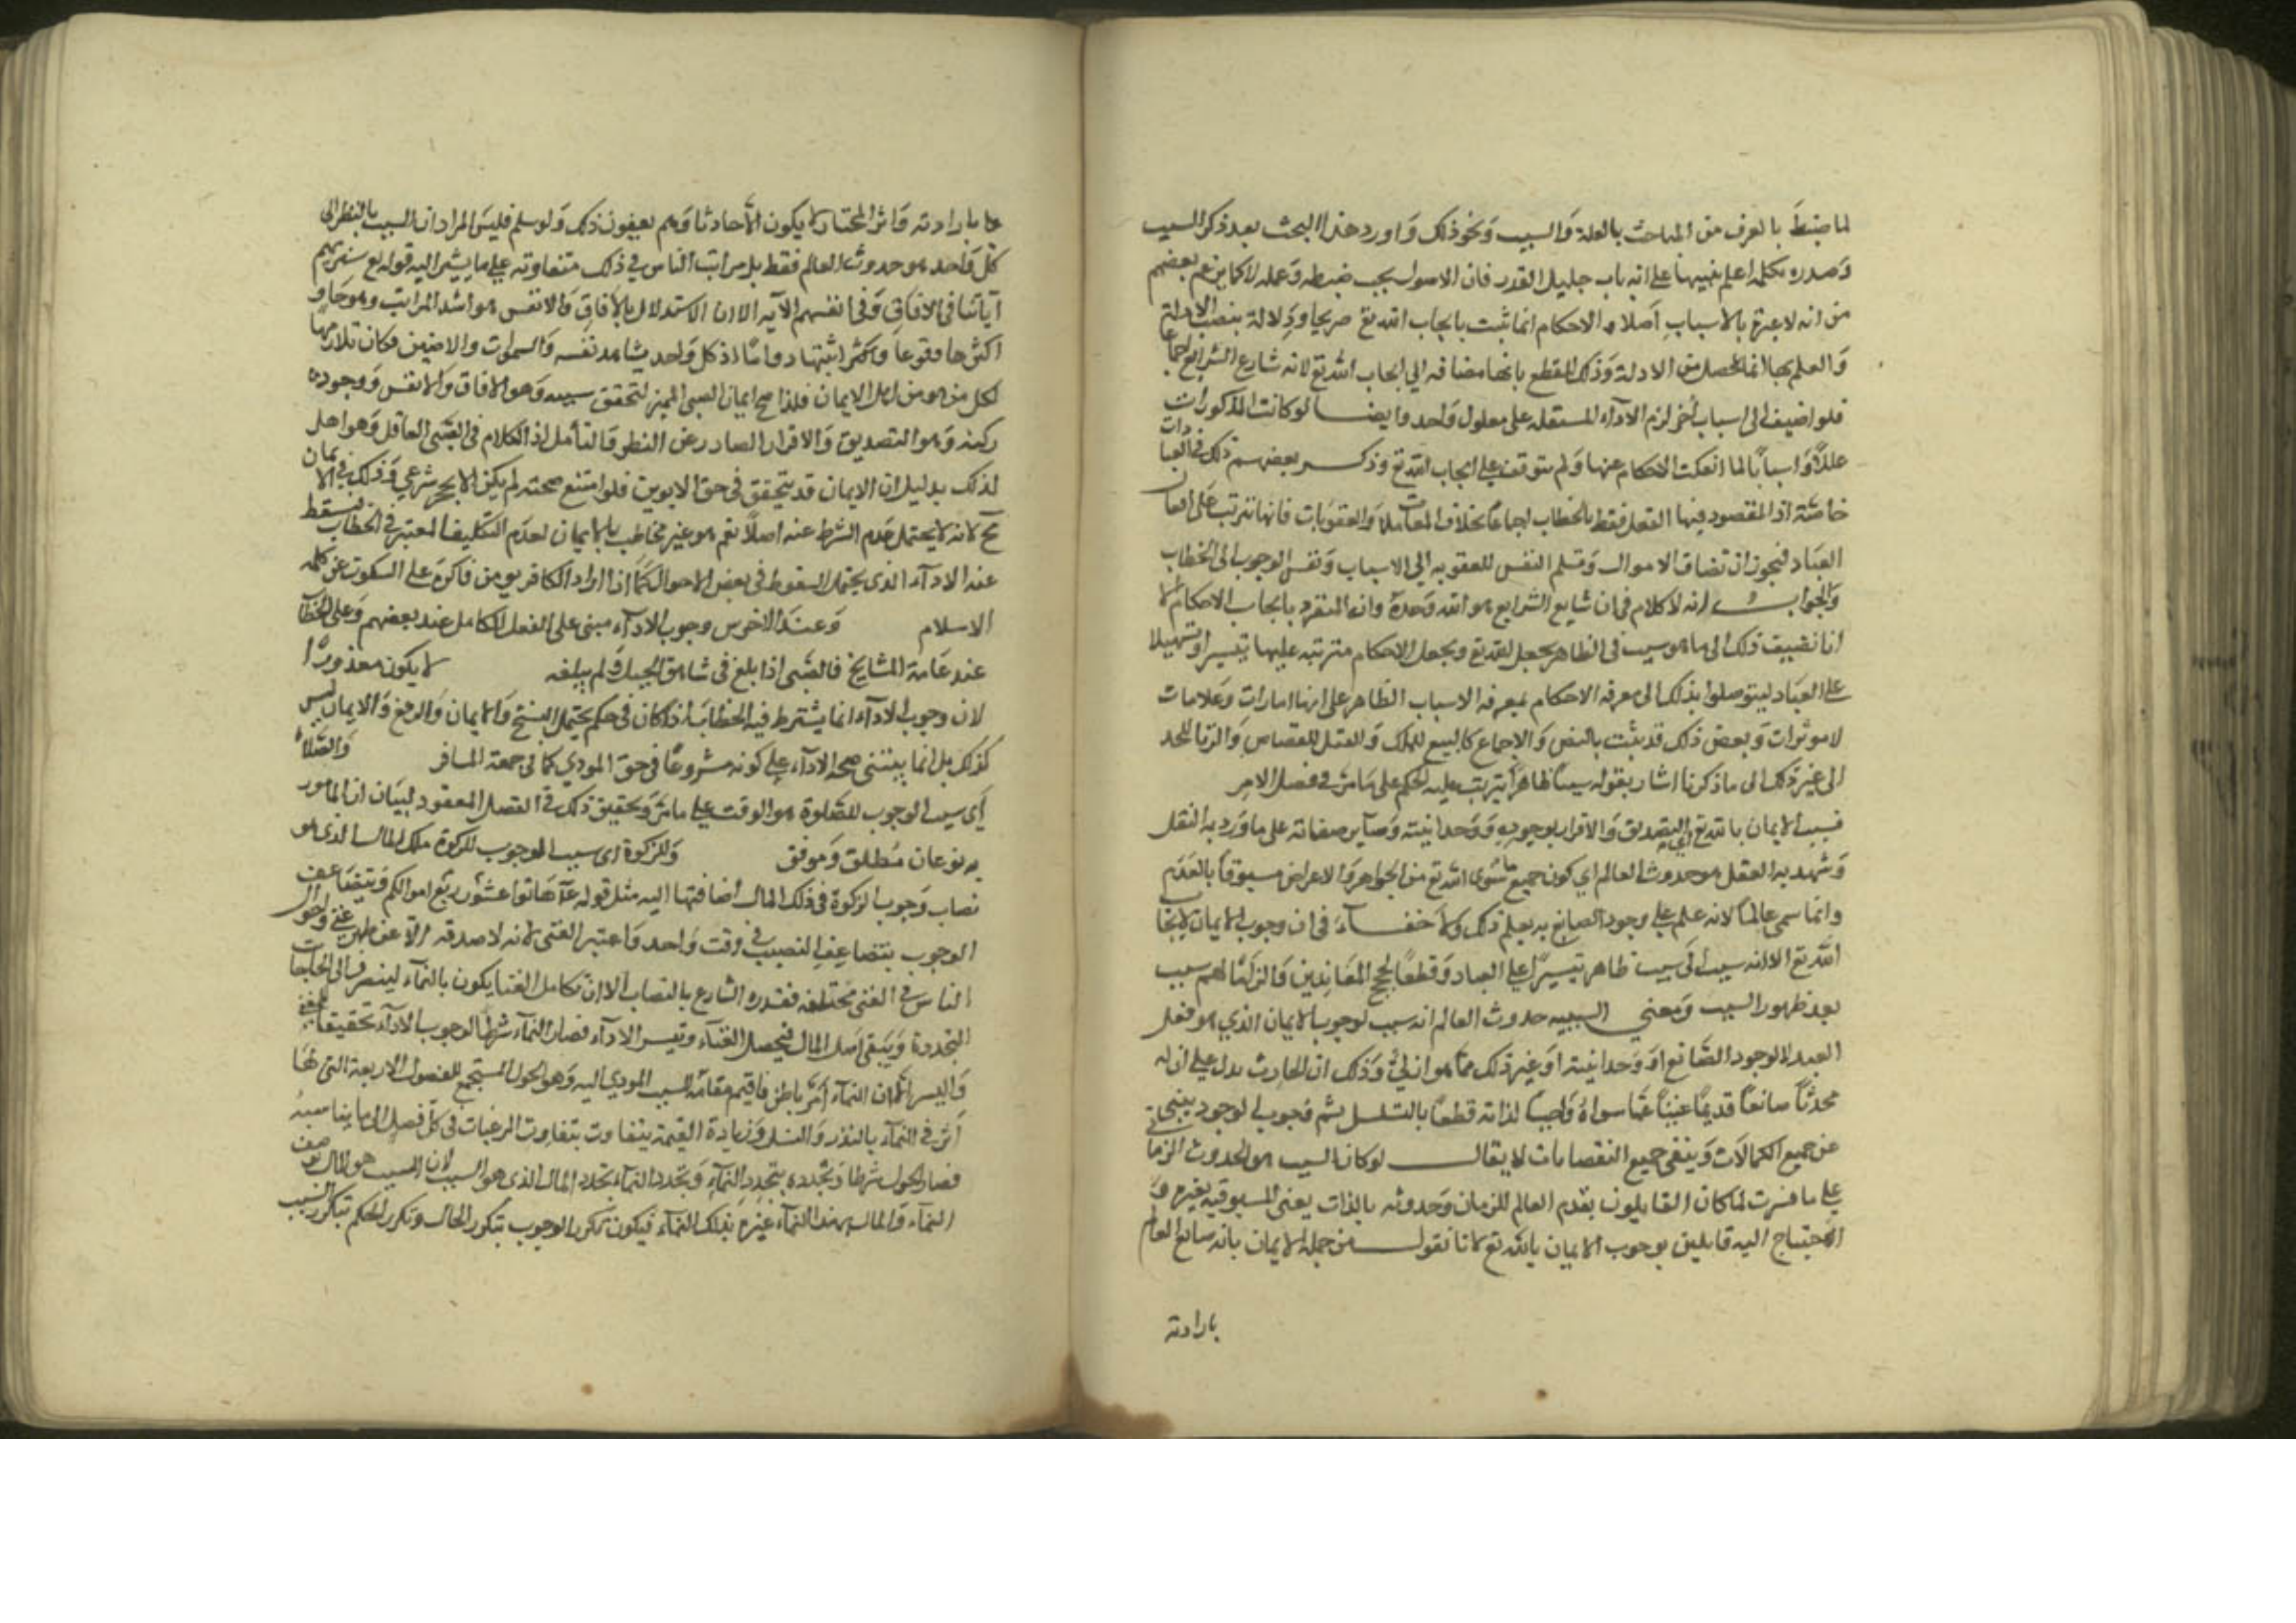 لما ضبط بالعرف من المباحث بالعلة والسبب ونحو ذلك واورد هذا البحث بعد ذكر السبب
وصدره بكلمة اعلم تنبيها على انه باب جليل القدر فان الاصول يجب ضبطه وعمله لا كما يزعم بعضهم
من انه لا عبرة بالاسباب اصلا والاحكام انما ثبت بايجاب الله تع صريحا ودلالة بنصب الادلة
والعلم بها انما يحصل من الادلة وذلك للقطع بانها مضافة الي ايجاب الله تع لانه شارع الشرايع اجماعا
فلو اضيف الى اسباب أخر لزم الاداء المستقلة على معلول واحد وايضا لو كانت المذكورات
عللا واسبابا لما انفكت الاحكام عنها ولم يتوقف على ايجاب الله تع وذكر بعضهم ذلك في العبادات
خاصة اذ المقصود فيها الفعل فقط بالخطاب اجماعا بخلاف المعاملات والعقوبات فانها تترتب على افعال
العباد فيجوز ان تضاف الاموال وتسلم النفس للعقوبة الي الاسباب ونفس الوجوب الى الخطاب
والجواب انه لا كلام في ان شارع الشرايع هو الله وحده وانه المنفرد بايجاب الاحكام الا
انا نضيف ذلك الى ما هو سبب في الظاهر بجعل الله تع ويجعل الاحكام مترتبة عليها تيسيرا وتسهيلا
على العباد ليتوصلوا بذلك الى معرفة الاحكام بمعرفة الاسباب الظاهر على انها امارات وعلامات
لا موثرات وبعض ذلك قد يثبت بالنص والاجماع كالبيع للملك والقتل للقصاص والزنا للحد
الى غير ذلك الى ما ذكرنا اشار بقوله سببا ظاهرا يترتب عليه الحكم على ما مر في فصل الامر
فسبب الايمان بالله تع اي التصديق والاقرار بوجوده ووحدانيته وساير صفاته على ما ورد به النقل
وشهد به العقل هو حدوث العالم اي كون جميع ما سوى الله تع من الجواهر والاعراض مسبوقا بالعدم
وانما سمي عالما لانه علم علي وجود الصانع به يعلم ذلك ولا خفاء في ان وجوب الايمان بايجاب
الله تع الا انه سبب الى سبب ظاهر تيسيرا علي العباد وقطعا لحجج المعاندين والزاما لهم سبب
بعد ظهور السبب ومعني السببية حدوث العالم انه سبب لوجوب الايمان الذي هو فعل
العبد لا لوجود الصانع او وحدانيته او غير ذلك مما هو ازلي وذلك ان الحادث يدل على ان له
محدثا صانعا قديما غنيا عما سواه واجبا لذاته قطعا بالتسلسل ثم وجوب الوجود ينبي
عن جميع الكمالات وينفي جميع النقصانات لا يقال لو كان السبب هو الحدوث الزماني
علي ما فسرت لما كان القايلون بقدم العالم للزمان وحدوثه بالذات يعني المسبوقية بغيره و
الاحتياج اليه قايلين بوجوب الايمان بالله تع لانا نقول من جملة الايمان بانه صانع العالم
بارادته
بارادته واثر المختار لا يكون الا حادثا وهم ينفون ذلك ولو سلم فليس المراد ان السبب بالنظر الى
كل واحد هو حدوث العالم فقط بل مراتب الناس في ذلك متفاوته علي ما يشير اليه قوله تع سنريهم
آياتنا في الافاق وفي انفسهم الآية الا ان الاستدلال بالآفاق والانفس هو اشد المراتب وهو
اكثرها وقوعا واكثر اثبتها دواما اذ كل واحد يشاهد نفسه والسموات والارضين فكان تلازمها
لكل من هو من اهل الايمان فلذا صح ايمان الصبي المميز لتحقق سببه وهو الافاق والانفس ووجود
ركنه وهو التصديق والاقرار الصادر عن النظر والتأمل اذ الكلام في الصبي العاقل وهو اهل
لذلك بدليل ان الايمان قد يتحقق في حق الابوين فلو امتنع صحته لم يكن الا بحجر شرعي وذلك في الايمان
مح لانه لا يحتمل عدم الشرط عنه اصلا نعم هو غير مخاطب بالايمان لعدم التكليف المعتبر في الخطاب فيسقط
عنه الاداء الذي يحتمل السقوط في بعض الاحوال كما اذا اراد الكافر يومن فاكره على السكوت عن كلمة
الاسلام وعند الاخرس وجوب الاداء مبني على الفعل الكامل عند بعضهم وعلى الخطاب
عند عامة المشايخ فالصبي اذا بلغ في شاهق الجبل ولم يبلغه لا يكون معذورا
لان وجوب الاداء انما يشترط فيه الخطاب اذا كان في حكم يحتمل النسخ والايمان والرفع والايمان ليس
كذلك بل انما يبتنى صحة الاداء علي كونه مشروعا في حق المودي كما في جمعة المسافر والصلاة
أي سبب الوجوب للصلوة هو الوقت علي ما مر وتحقيق ذلك في الفصل المعقود لبيان ان المامور
به نوعان مطلق وموقت وللزكوة اى سبب الوجوب للزكوة ملك المال الذى هو
نصاب وجوب الزكوة في ذلك المال اضافتها اليه مثل قوله عم هاتوا عشور ربع اموالكم ويتضاعف
الوجوب بتضاعف النصيب في وقت واحد واعتبر الغنى لانه لا صدقة الا عن ظهر غني واحوال
الناس في الغنى مختلفة فقدره الشارع بالنصاب الا ان تكامل الغنا يكون بالنماء لينصرف الى الحاجات
المتجددة ويبقى اصل المال فيحصل الغناء وتيسر الاداء فصار النماء شرطا لوجوب الاداء تحقيقا للغني
واليسر الا ان النماء امر باطن فاقيم مقامه السبب المودي اليه وهو الحول المستجمع للفصول الاربعة التي لها
أثر في النماء بالنذر والنسل وزيادة القيمة بتفاوت الرغبات في كل فصل الى ما يناسبه
فصار الحول شرطا وتجدده بتجدد النماء وتجدد النماء تجدد المال الذي هو السبب لان السبب هو المال بوصف
النماء والمال بهذا النماء غيره بذلك النماء فيكون تكرر الوجوب بتكرر الحال وتكرر الحكم بتكرر السبب